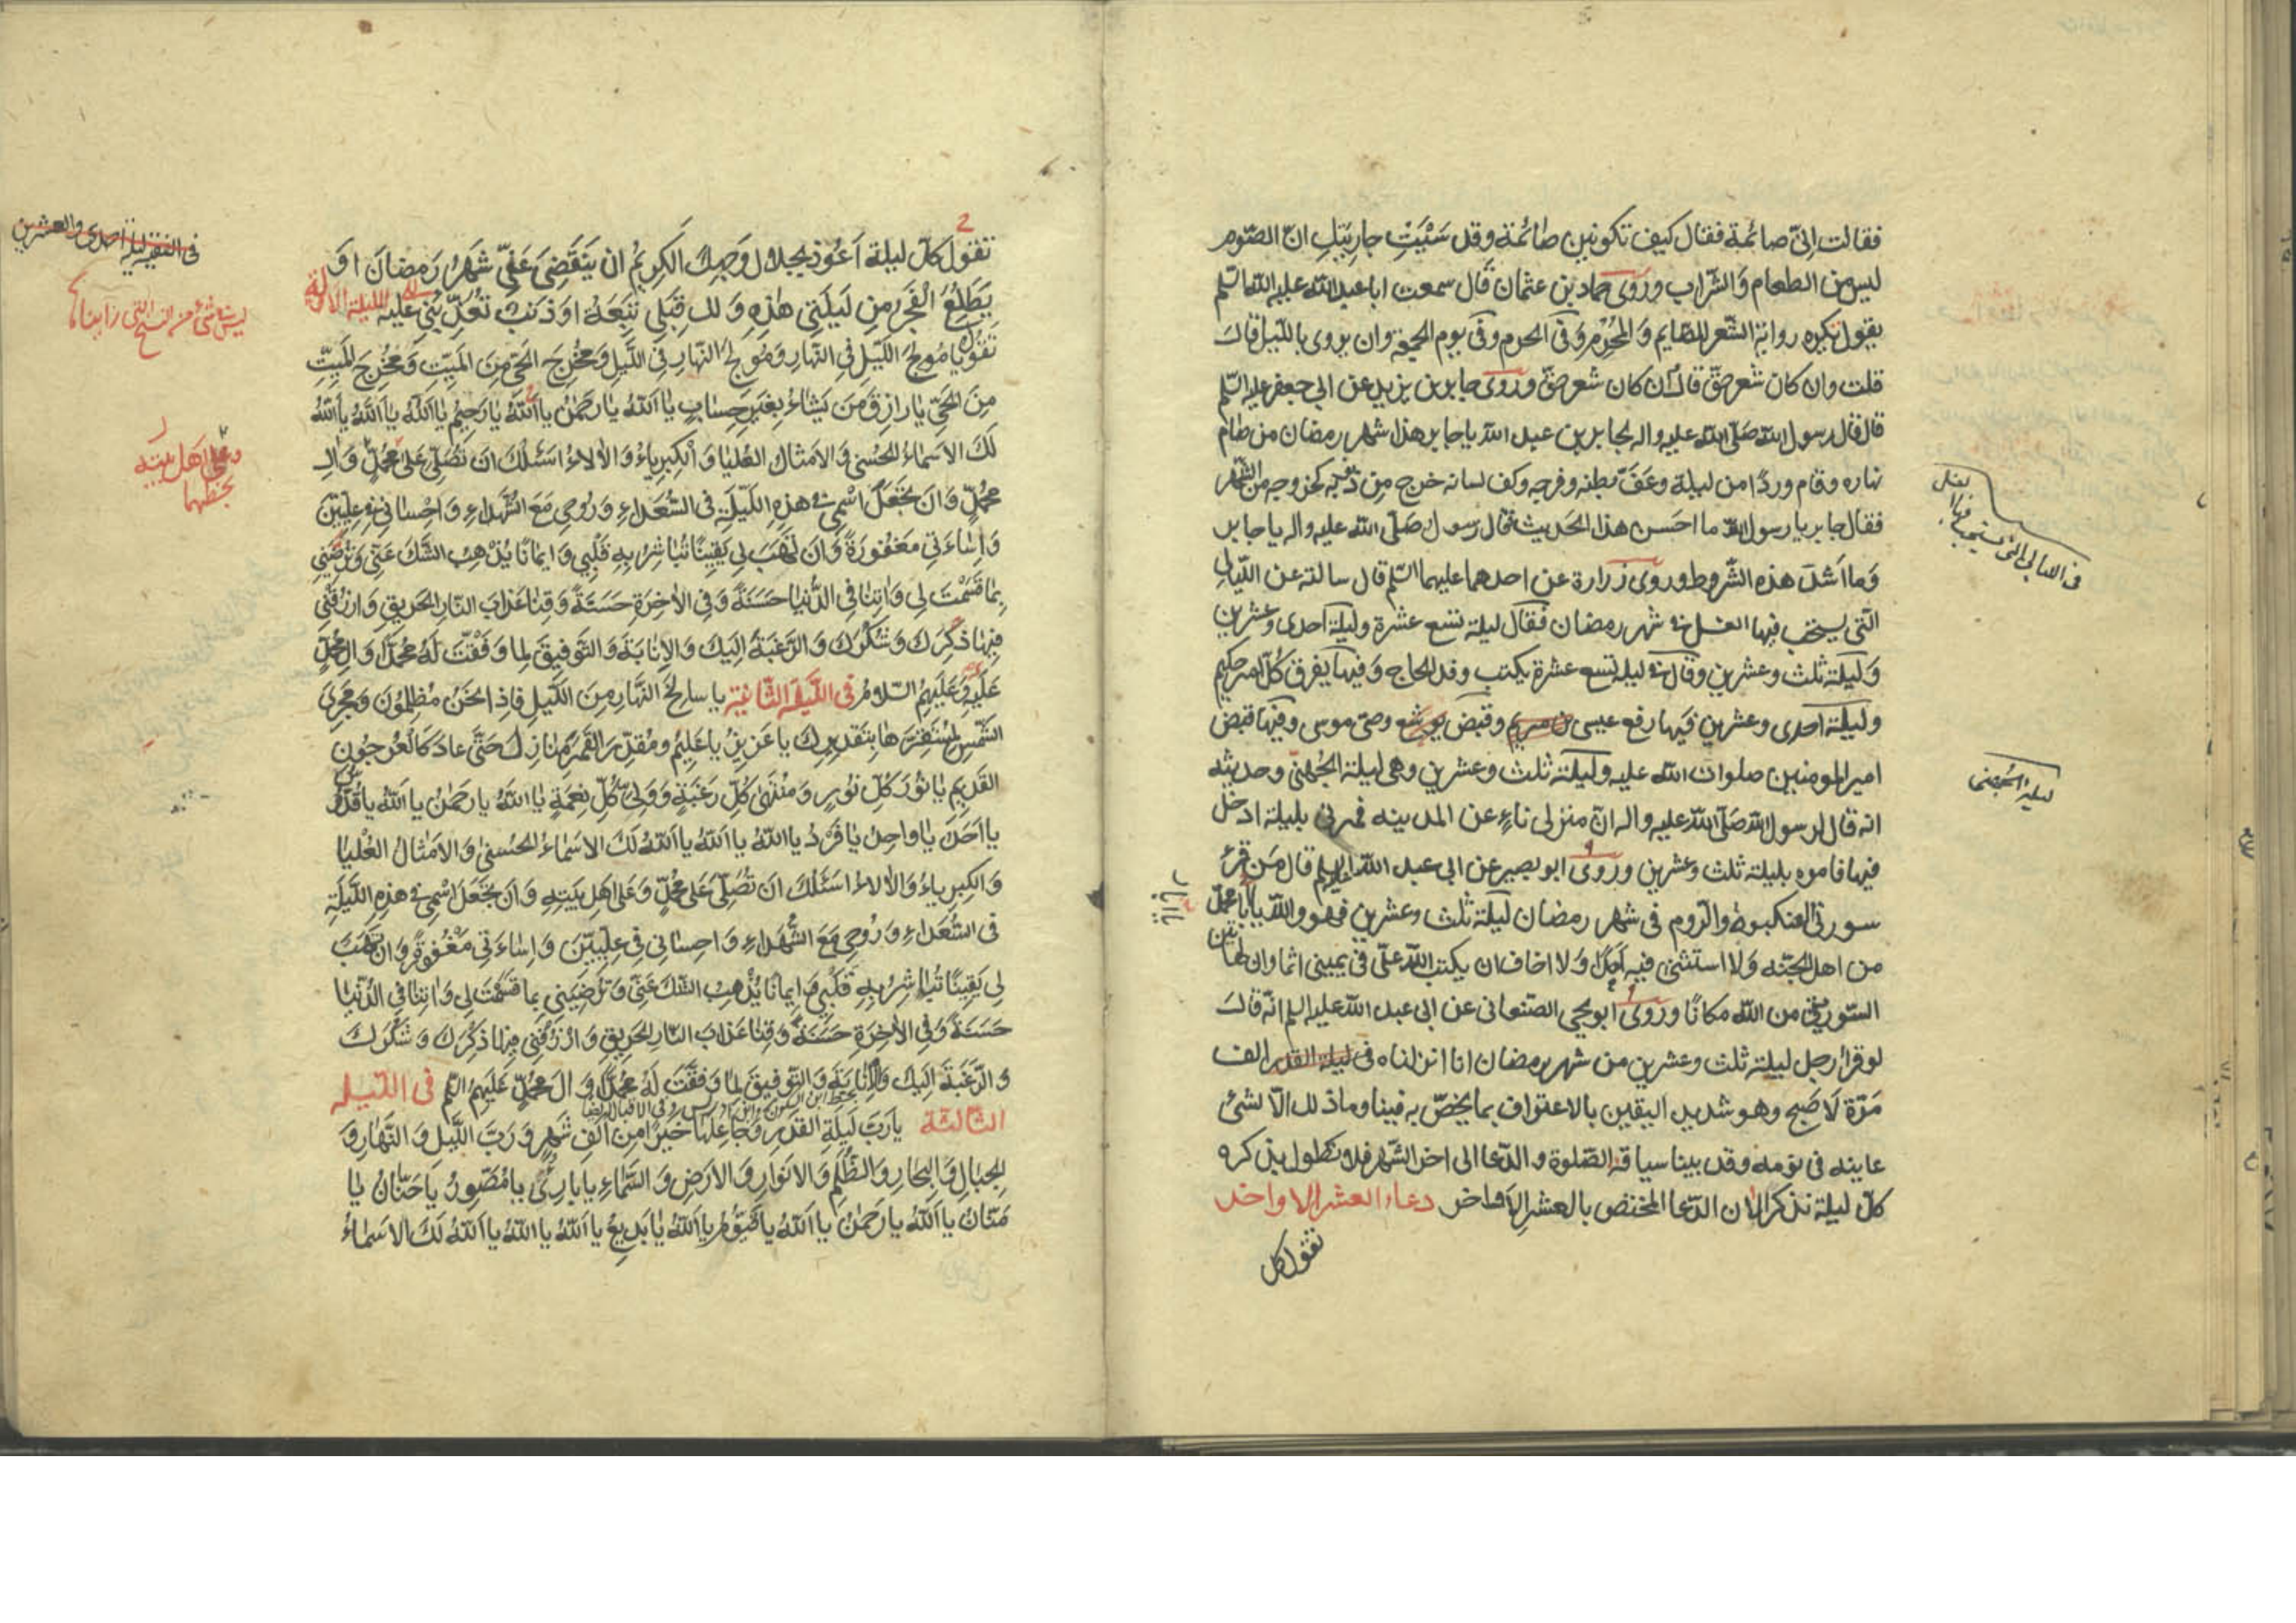 فقالت انّى صائمة فقال كيف تكونين صائمة وقد سَبَبْتِ جارِيَتكِ انّ الصّوم
ليس من الطعام والشراب وروى حماد بن عثمان قال سمعت ابا عبد الله عليه السّلم
يقول يكره رواية الشّعر للصّايم والمُحْرِم وفى الحرم وفى يوم الجمعة وان يروى بالليل قال
قلت وان كان شعر حقّ قال ان كان شعر حقّ وروى جابر بن يزيد عن ابي جعفر عليه السّلم
قال قال رسول الله صَلّى الله عليه واله لجابر بن عبد الله يا جابر هذا شهر رمضان من صام
نهاره وقام وردًا من ليلة وعَفّ بطنه وفرجه وكف لسانه خرج من ذنبه كخروجه من الشّهر
فقال جابر يا رسول الله ما احسن هذا الحديث فقال رسول الله صَلّى الله عليه واله يا جابر
وَما اَشدّ هذه الشّروط وروى زرارة عن احدهما عليهما السّلم قال سالته عن اللّيالى
التّى يستحب فيها الغسل فى شهر رمضان فقال ليلة تسع عشرة وليلة احدى وعشرين
وَليلة ثلث وعشرين وقال فى ليلة تسع عشرة يكتب وفد الحاج وفيها يفرق كلّ امر حكيم
وليلة احدى وعشرين فيها رفع عيسى بن مريم وقبض يوشع وصى موسى وفيها قبض
امير المومنين صلوات الله عليه وليلة ثلث وعشرين وهى ليلة الجُهنىّ وحديثه
انه قال لرسول الله صَلّى الله عليه واله انّ منزلى ناءٍ عن المدينه فمرنى بليلة ادخل
فيها فامره بليلة ثلث وعشرين وروى ابو بصير عن ابى عبد الله عليه السلم قال مَن قرء
سورتى العنكبوط والروم فى شهر رمضان ليلة ثلث وعشرين فهو والله يا ابا محمّد
من اهل الجنّه وَلا استثنى فيه اَبدًا وَلا اخاف ان يكتب الله علىّ فى يمينى اثما وان لهاتين
السّورتين من الله مكانًا وروى ابو يحيى الصّنعانى عن ابى عبد الله عليه السلم انّه قال
لو قرا رجل ليلة ثلث وعشرين من شهر رمضان انا انزلناه فى ليلة القدر الف
مَرّة لَاصبح وهو شديد اليقين بالاعتراف بما يخصّ به فينا وما ذلك الّا لشئ
عاينه فى نومه وقد بينا سياقة الصّلوة والدّعا الى اخر الشّهر فلا نطول بذكره
كلّ ليلة نذكر الان الدّعا المختص بالعشر الاَواخر دعاء العشر الاواخر
تقول كل
ليلة الجُهنى
تقول كلّ ليلة اَعُوذ بجلال وَجهِكَ الكَرِيمُ ان يَنقَضِىَ عَنّى شَهرُ رَمضانَ اوَ
يَطلعُ الْفَجر مِن لَيلَتى هٰذِهِ وَلك قِبَلى تَبِعَة اوَ ذَنبٌ تُعَذّبُنى عَليه الليلة الاولة
تقول يا مُولجُ اللّيل فى النّهار وَمُولجَ النّهار فِى اللّيل وَمُخرِجَ الحَىّ مِنَ المَيّت وَمُخرِجَ المَيّتِ
مِنَ الحَىّ يا رازِقَ مَنَ يَشاءُ بِغَيرِ حِسابٍ يا اَللهُ يا رَحمٰنُ يا اللهُ يا رَحِيمُ يا اَللهُ يا اَللهُ يا اَللهُ
لَكَ الاسماءُ الحُسنى وَالامثال العُليا وَالكِبرِياءُ وَالالاءُ اسئلُكَ انَ تُصَلّى عَلى مُحمّدٍ وَالِ
مُحَمّدٍ وَانَ تجعَل اسْمى فى هذِهِ اللّيلَة فى السُّعَداءِ وَرُوحى مَعَ الشُّهَداءِ وَاحِسانى فى عِلّيّينَ
وَاِساءَتى مَغفُورَةً وَانَ تَهَبَ لى يَقِينًا تُباشرُ بِهِ قَلبِى وَايمانًا يُذْهِبُ الشّكَ عَنّى وَتُرضِيَنى
بِما قَسَمْتَ لى وَاتِنا فى الدُّنيا حَسَنَةً وَفى الاخِرَةِ حَسَنَةً وَقِنا عَذابَ النّار الحَرِيق وَارزُقنى
فِيها ذِكرَكَ وَشُكرَكَ وَالرّغبَةَ اِليَكَ وَالاِنابَةَ وَالتّوفِيقَ لِما وَفّقتَ لَهُ مُحَمّدًا وَالَ مُحَمّدٍ
عَلَيهِ وَعَلَيهِمُ السّلامُ فى اللّيلة الثّانية يا سالِخَ النّهارِ مِنَ اللّيلِ فاِذا نَحنُ مُظلِمُونَ وَمُجرِىَ
الشّمسِ لِمُستَقَرّها بِتَقدِيرِكَ يا عَزِيزُ يا عَلِيمُ وَمُقدّرَ القَمَرِ مَنازِلَ حَتّى عادَ كَالعُرجُون
القَدِيم يا نُورَ كلِّ نُورٍ وَمُنتَهى كُلّ رَغبَةٍ وَوَلىّ كُلّ نِعمَةٍ يا اَللهُ يا رَحمٰنُ يا اَللهُ يا قُدّوسُ
يا اَحَدُ يا واحِدُ يا فَردُ يا اَللهُ يا اَللهُ يا اَللهُ لَكَ الاسَماءُ الحُسنى وَالامَثالُ العُليا
وَالكِبرِياءُ وَالالاءُ اسَئلُكَ انَ تُصَلّى عَلى مُحَمّدٍ وَعَلى اهَلِ بَيتِهِ وَانَ تَجعَلَ اسمى فى هذِهِ اللّيلَةِ
فى السُّعَداءِ وَرُوحى مَعَ الشُّهَداءِ وَاحِسانى فى عِلّيّينَ وَاِساءَتى مَغفُورَةً وَانَ تَهَبَ
لى يَقِينًا تُباشِرُ بِهِ قَلبى وَايِمانًا يُذْهِبُ الشّكَ عَنّى وَتُرضِيَنى بِما قَسَمتَ لى وَاتِنا فى الدُّنيا
حَسَنَةً وَفى الاخِرَةِ حَسَنَةً وَقِنا عَذابَ النّار الحَرِيق وَارزُقنى فِيها ذِكرَكَ وَشُكرَكَ
وَالرّغبَةَ اِلَيكَ وَالاِنابَةَ وَالتّوفِيقَ لِما وَفّقتَ لَهُ مُحَمّدًا وَالَ مُحَمّدٍ عَلَيهِمُ السّلم فى اللّيلة
الثالثة يا رَبّ لَيلَةِ القَدر وَجاعِلَها خَيرًا مِن اَلفِ شَهرٍ وَرَبّ اللّيل وَالنّهارِ وَ
الجبالِ وَالبِحارِ وَالظُّلَمِ وَالانوارِ وَالارَضِ وَالسّماءِ يا بارِئُ يا مُصَوّرُ يا حَنّانُ يا
مَنّانُ يا اَللهُ يا رَحمٰنُ يا اَللهُ يا قَيّوُمُ يا اَللهُ يا بَدِيعُ يا اَللهُ يا اَللهُ يا اَللهُ لَكَ الاسَماءُ
فى الفقيه ليلة احدى والعشرين
ليس شئ من النسخ التى رايناها
وعلى اهل بيته
بخطهما